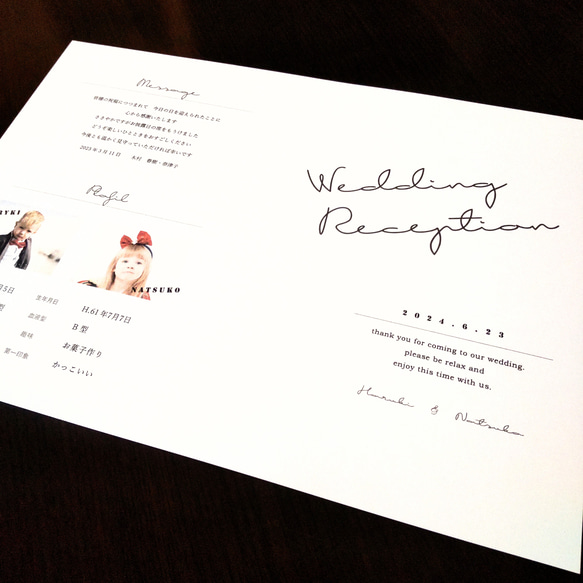 Message
皆様の祝福につつまれて 今日の日を迎えられたことに
心から感謝いたします
ささやかですがお披露目の席をもうけました
どうぞ楽しいひとときをおすごしください
今後とも温かく見守っていただければ幸いです
2023年3月11日 木村 春樹・奈津子
Plofil
RYKI
NATSUKO
5日 生年月日 H.61年7月7日
型 血液型 B型
趣味 お菓子作り
第一印象 かっこいい
Wedding
Reception
2024.6.23
thank you for coming to our wedding.
please be relax and
enjoy this time with us.
Haruki & Natsuko